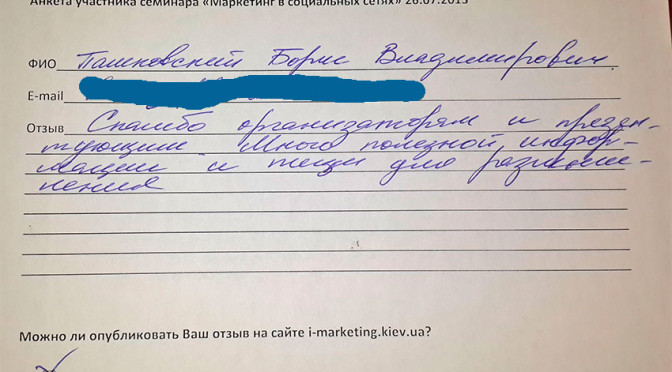 Анкета участника семинара «Маркетинг в социальных сетях» 26.07.2013
ФИО Пашковский Борис Владимирович
E-mail
Отзыв Спасибо организаторам и презен-
тующим. Много полезной инфор-
мации и пищи для размыш-
ления
Можно ли опубликовать Ваш отзыв на сайте i-marketing.kiev.ua?